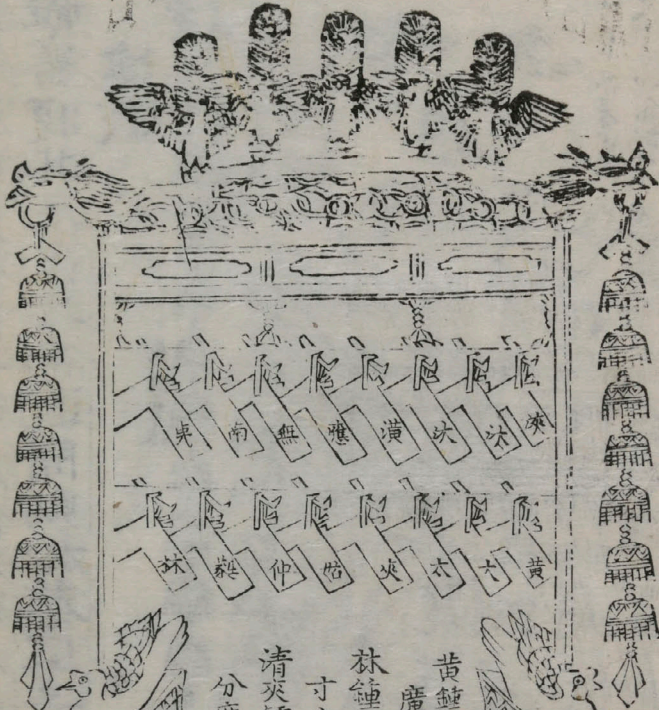 夷 南 無 應 潢 汰 汏 浹
林 蕤 仲 姑 夾 太 大 黃
黃鍾
廣
林鍾
寸
清夾
分